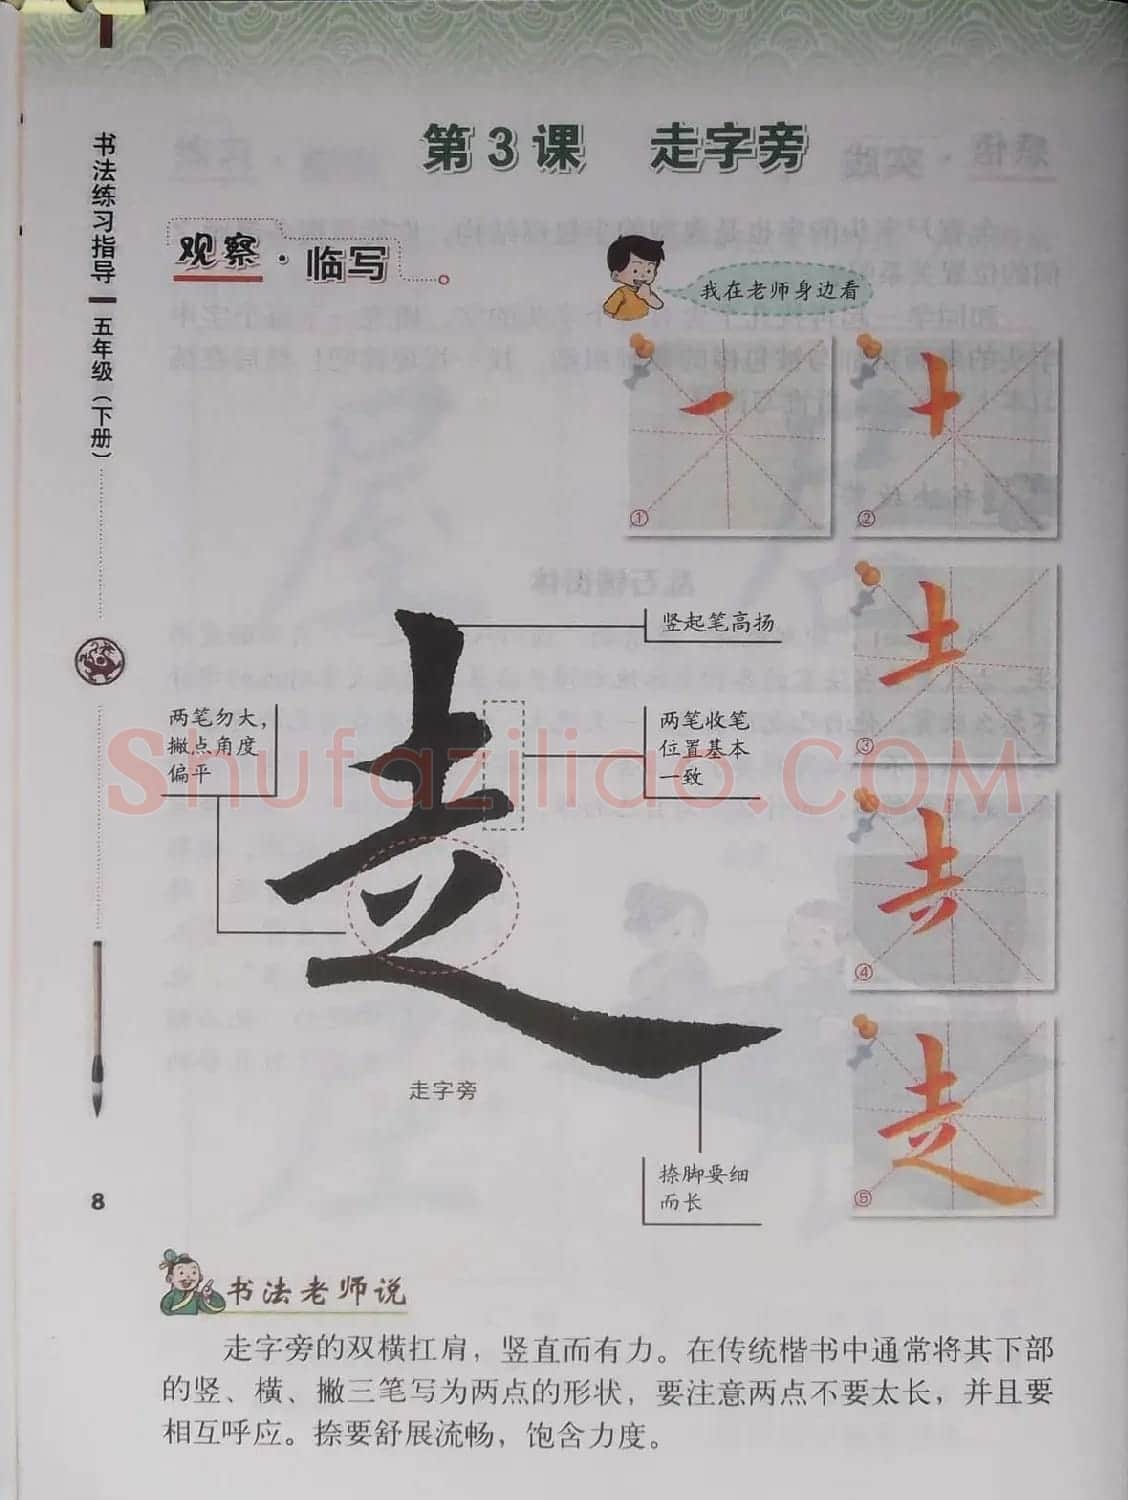 第3课 走字旁
书法练习指导
五年级（下册）
观察·临写
我在老师身边看
①
②
③
④
⑤
竖起笔高扬
两笔勿大，
撇点角度
偏平
两笔收笔
位置基本
一致
走字旁
捺脚要细
而长
Shufaziliao.COM
8
书法老师说
走字旁的双横扛肩，竖直而有力。在传统楷书中通常将其下部
的竖、横、撇三笔写为两点的形状，要注意两点不要太长，并且要
相互呼应。捺要舒展流畅，饱含力度。